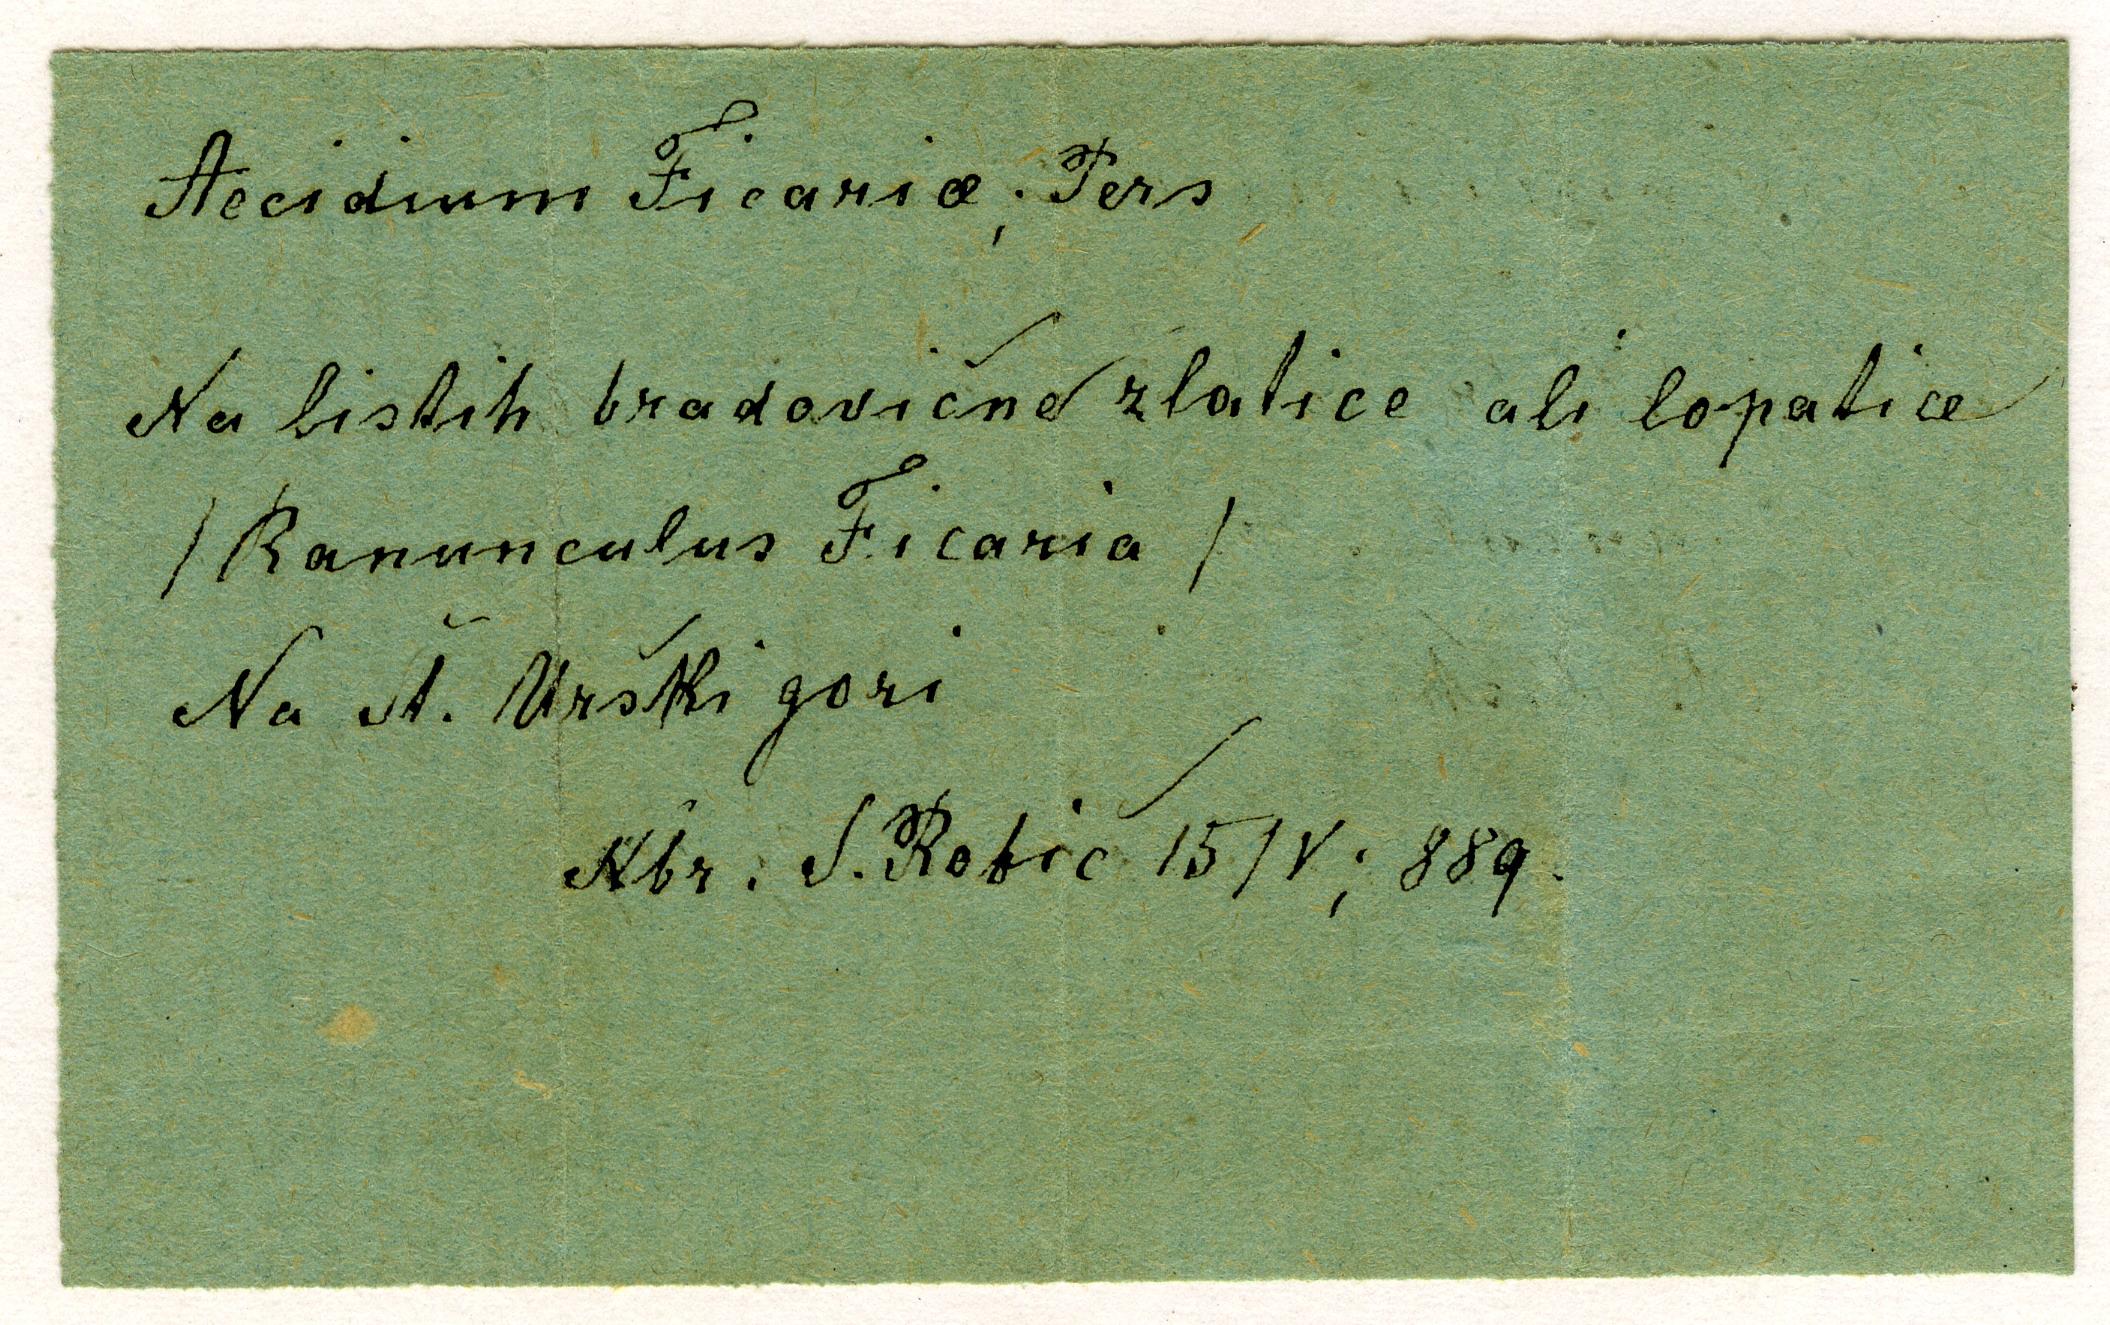 Aecidium Ficariæ; Pers
Na listih bradovične zlatice ali lopatice
/Ranunculus Ficaria/
Na št. Urški gori
Nbr. S. Robič 15/V; 889.